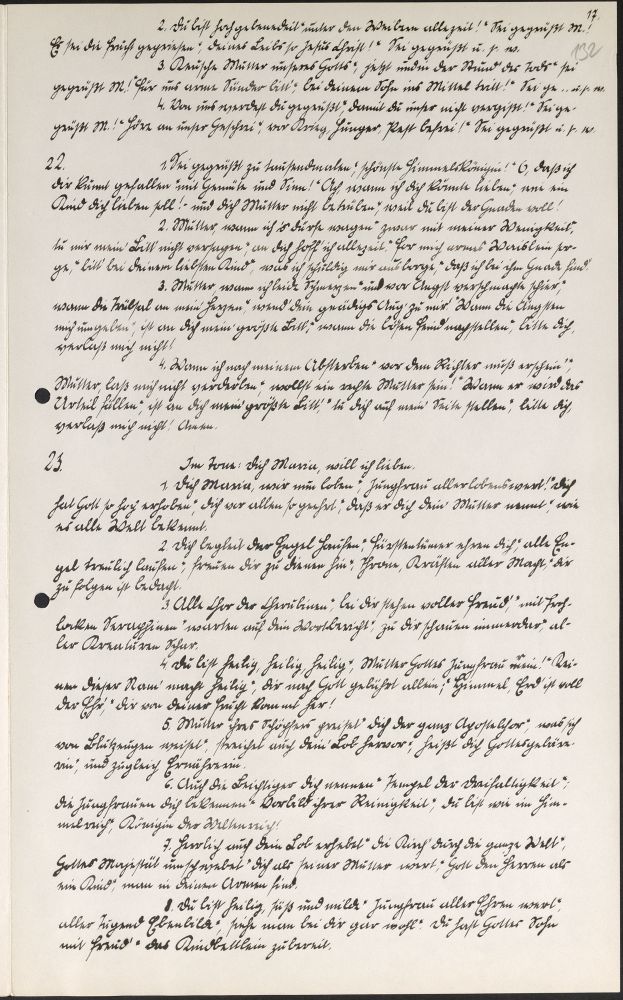 17.
132
2. Du bist hochgebenedeit" unter den Weibern allezeit!" Sei gegrüßt M.!
Es sei die Frucht gepriesen", deines Leibs so Jesus Christ!" Sei gegrüßt u. s. w.
3. Keusche Mutter unseres Gotts", jetzt und in der Stund des Tods" sei
gegrüßt M.!" Für uns arme Sünder bitt", bei deinem Sohn uns Mittel tritt!" Sei ge... u. s. w.
4. Von uns werdest du gegrüßt" damit du unser nicht vergißt!" Sei ge-
grüßt M.!" Höre an unser Geschrei", vor Krieg, Hunger, Pest befrei!" Sei gegrüßt u. s. w.
22. 1. Sei gegrüßt zu tausendmalen", schönste Himmelskönigin!" O, daß ich
dir könnt gefallen" mit Gemüte und Sinn!" Ach wann ich dich könnte lieben", wie ein
Kind dich lieben soll!- und dich Mutter nicht betrüben", weil du bist der Gnaden voll!
2. Mutter, wann ich es dürfe wagen" zwar mit meiner Wenigkeit",
tu mir mein Bitt nicht versagen", an dich hoff ich allezeit." Für mich armes Waislein sor-
ge," bitt bei deinem liebsten Kind", was ich schuldig mir ausborge," daß ich bei ihm Gnade find.
3. Mutter, wann ich leide Schmerzen" und vor Angst verschmachte schier,"
wann die Trübsal an mein Herzen", wend dein gnädigs Aug zu mir." Wann die Ängsten
mich umgeben", ist an dich mein größte Bitt," wann die bösen Feind nachstellen", bitte dich,
verlaß mich nicht!
4. Wann ich nach meinem Absterben" vor dem Richter muß erschein'",
Mutter, laß mich nicht verderben", wollst ein rechte Mutter sein!" Wann er wird das
Urteil fällen", ist an dich mein größte Bitt," tu dich auf mein Seite stellen", bitte dich,
verlaß mich nicht! Amen.
23. Im Tone: Dich Maria, will ich lieben.
1. Dich Maria, wir nun loben", Jungfrau allerlobenswert!" Dich
hat Gott so hoch erhoben", dich vor allen so geehrt", daß er dich dein Mutter nennt", wie
es alle Welt bekennt.
2. Dich begleit der Engel Haufen", Fürstentümer ehren dich", alle En-
gel treulich laufen", freuen dir zu dienen hin", Throne, Kräften aller Macht," dir
zu folgen ist bedacht.
3. Alle Chor der Cherubinen", bei dir stehen voller Freud'," mit froh-
locken Seraphinen" warten auf dein Wortbericht", zu dir schauen immerdar", al-
ler Kreaturen Schar.
4. Du bist heilig, heilig, heilig", Mutter Gottes Jungfrau rein!" Dei-
nen dieser Nam' macht heilig", dir nach Gott gebührt allein", Himmel, Erd ist voll
der Ehr'," die von deiner Frucht kommt her!
5. Mutter ihres Schöpfers preiset" dich der ganz Apostelchor", was sich
von Blutzeugen weiset", streichet auch dein Lob hervor", heißt dich Gottesgebäre-
rin", und zugleich Ernährerin.
6. Auch die Beichtiger dich nennen" Tempel der Dreifaltigkeit",
die Jungfrauen dich bekennen" Vorbild ihrer Reinigkeit", du bist wie im Him-
melreich", Königin der Weltenreich!
7. Herrlich auch dein Lob erhebet" die Kirch' durch die ganze Welt",
Gottes Majestät umschwebet" dich als seiner Mutter wert," Gott den Herren als
ein Kind", man in deinen Armen find.
8. Du bist heilig, süß und milde" Jungfrau aller Ehren wert"
aller Tugend Ebenbilde", siehe man bei dir gar wohl" Du hast Gottes Sohn
mit Freud'" das Kindbettlein zubereit.